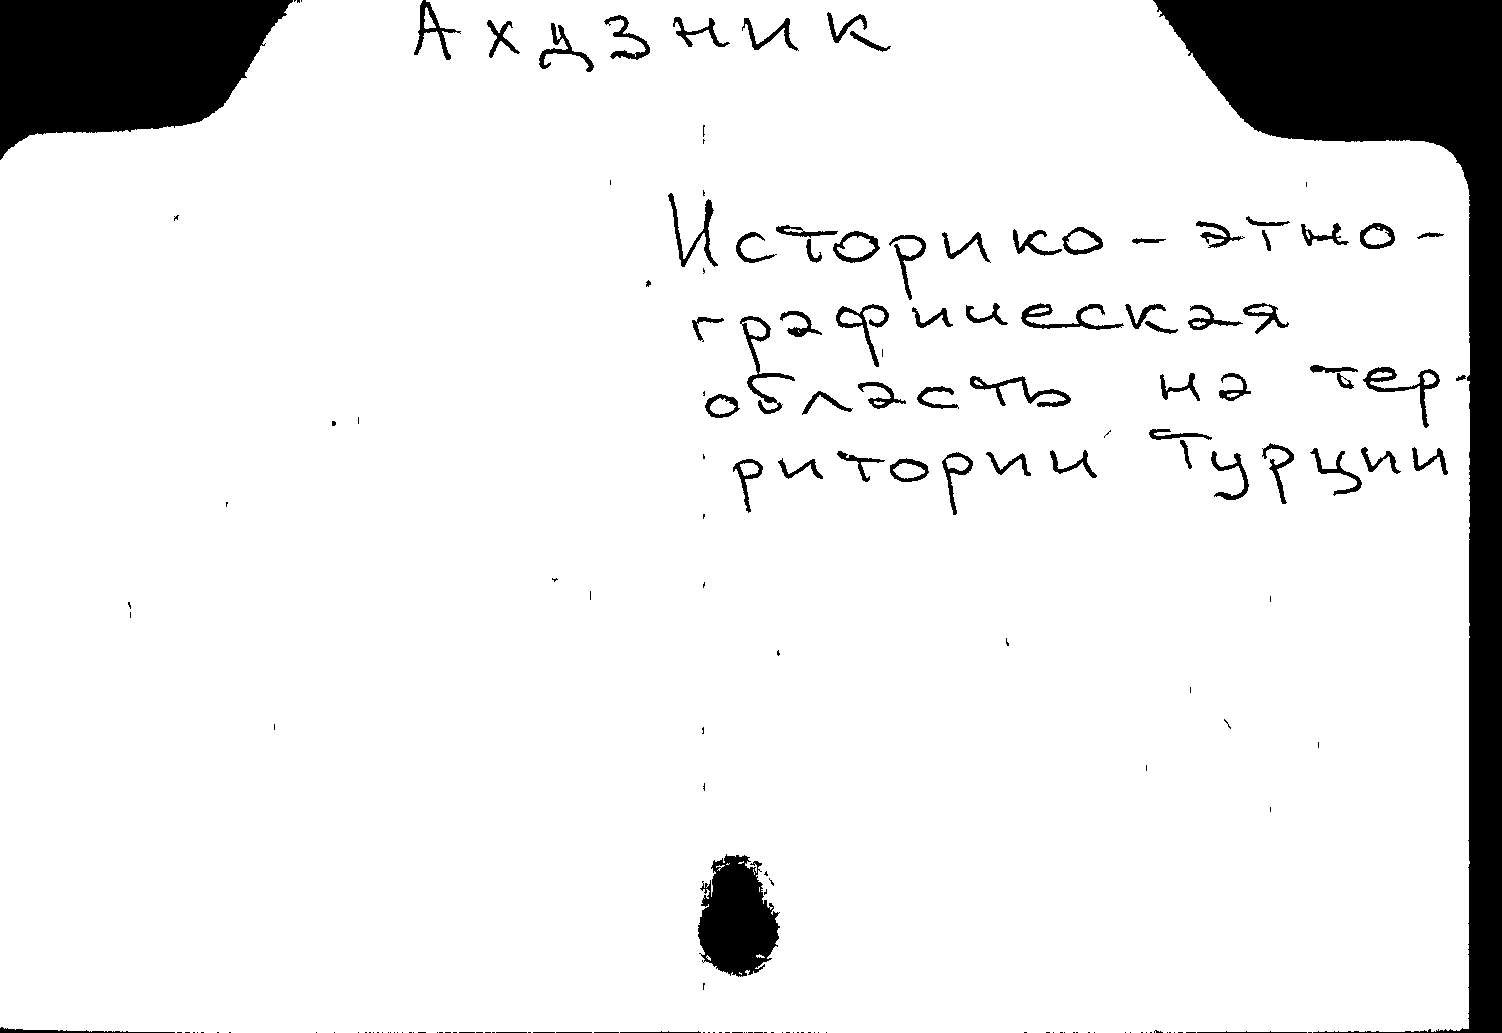 Ахдзник
Историко-этно-
графическая
область на тер-
ритории Турции